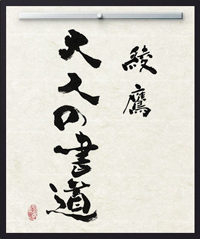 綾鷹
大人の書道